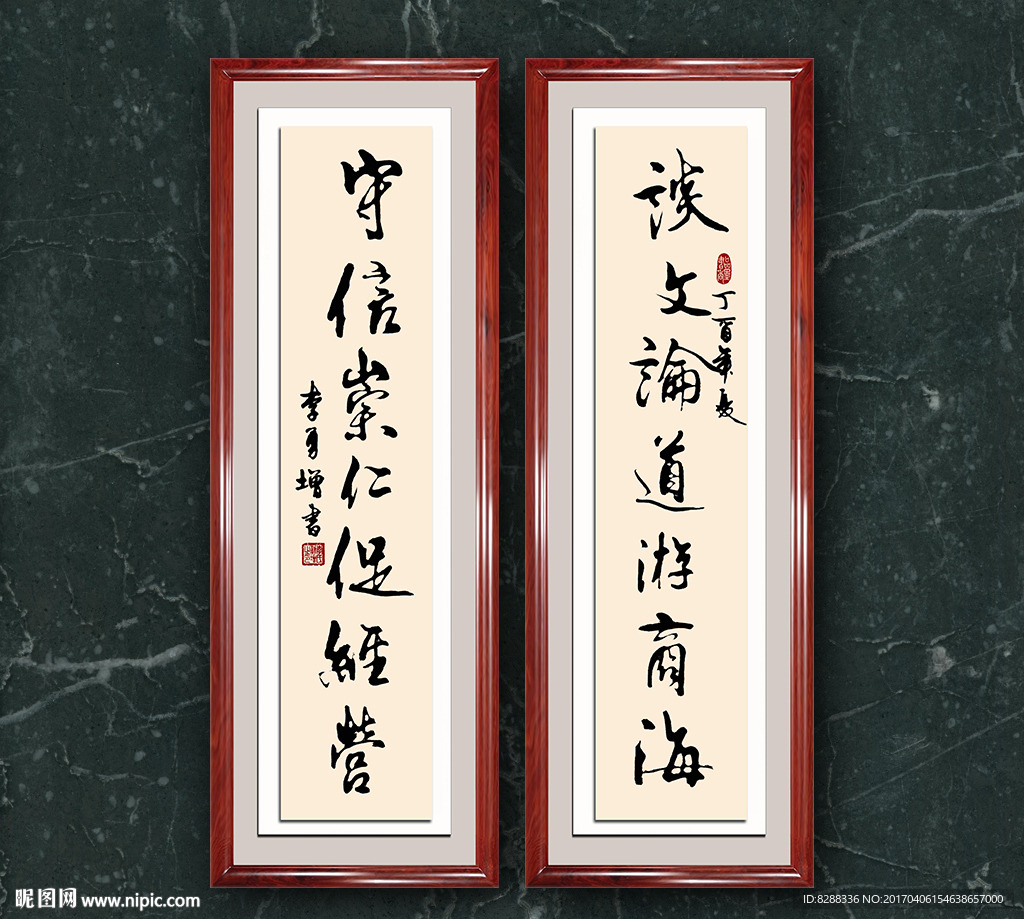 談文論道游商海
丁酉年夏
守信崇仁促經營
李勇增書
昵图网 www.nipic.com
ID:8288336 NO:20170406154638657000